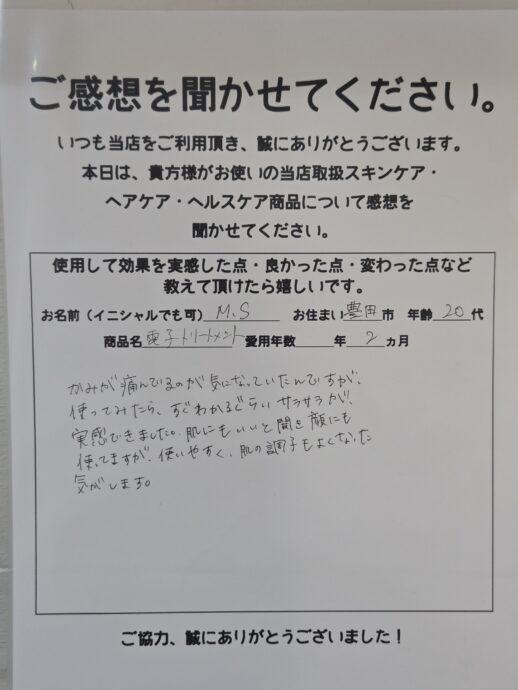 ご感想を聞かせてください。
いつも当店をご利用頂き、誠にありがとうございます。
本日は、貴方様がお使いの当店取扱スキンケア・
ヘアケア・ヘルスケア商品について感想を
聞かせてください。
使用して効果を実感した点・良かった点・変わった点など
教えて頂けたら嬉しいです。
お名前（イニシャルでも可） M.S お住まい 豊田 市 年齢 20 代
商品名 電子トリートメント 愛用年数 年 2 ヵ月
かみが痛んでるのが気になっていたんですが、
使ってみたら、すぐわかるぐらいサラサラが、
実感できました。肌にもいいと聞き顔にも
使ってますが、使いやすく、肌の調子もよくなった
気がします。
ご協力、誠にありがとうございました！